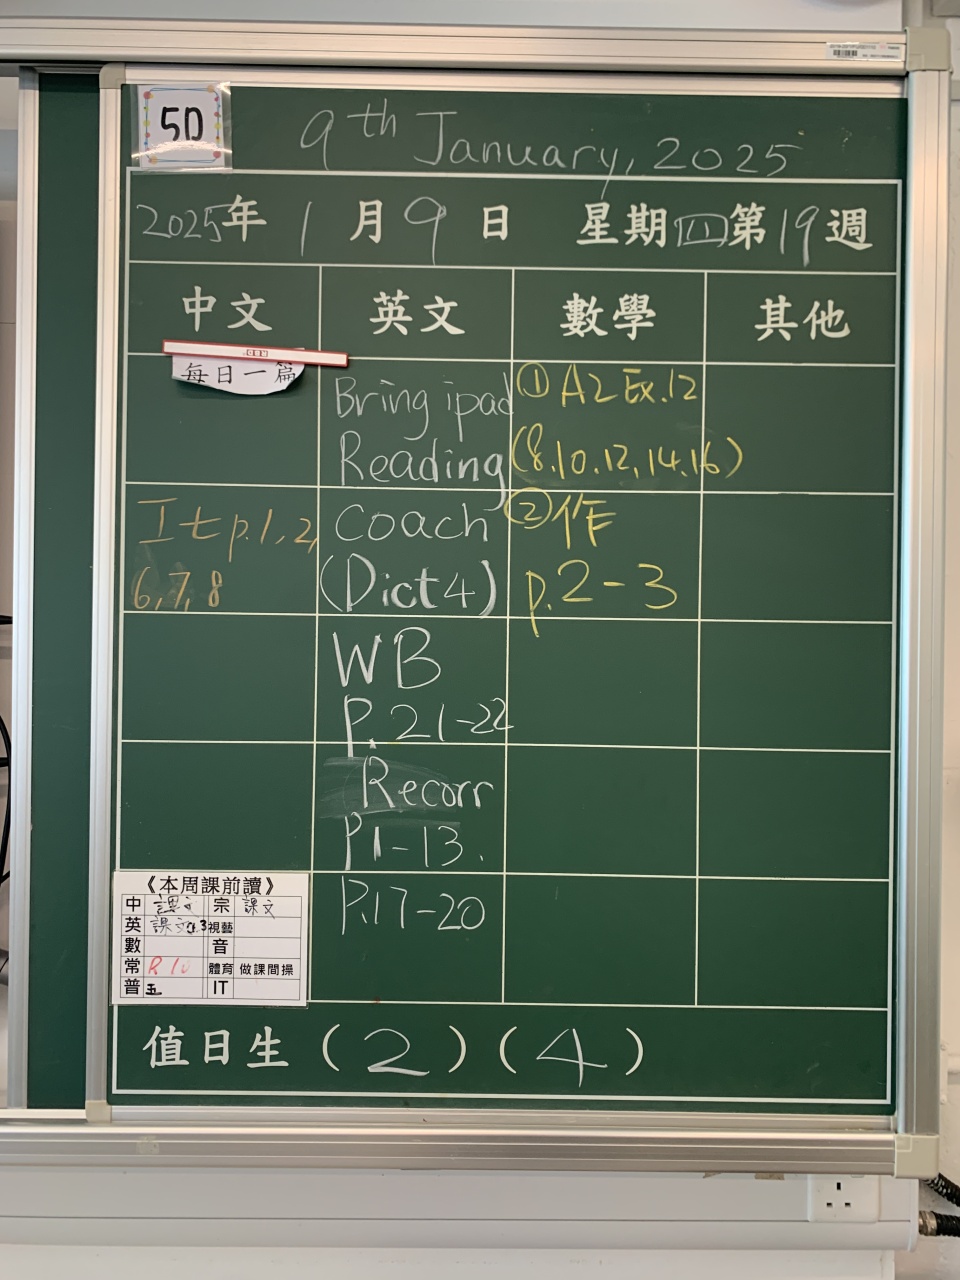 5D
9th January, 2025
2025年 1 月 9 日 星期四第19週
中文 英文 數學 其他
每日一篇
工七 p.1, 2,
6, 7, 8
Bring ipad
Reading
Coach
(Dict 4)
WB
P. 21-22
Recorr
P1-13.
P.17-20
① A2 Ex.12
(8.10.12,14.16)
② 作
p.2-3
《本周課前讀》
中 課文 宗 課文
英 課文 視藝
數 音
常 R 10 體育 做課間操
普 五 IT
值日生 (2) (4)